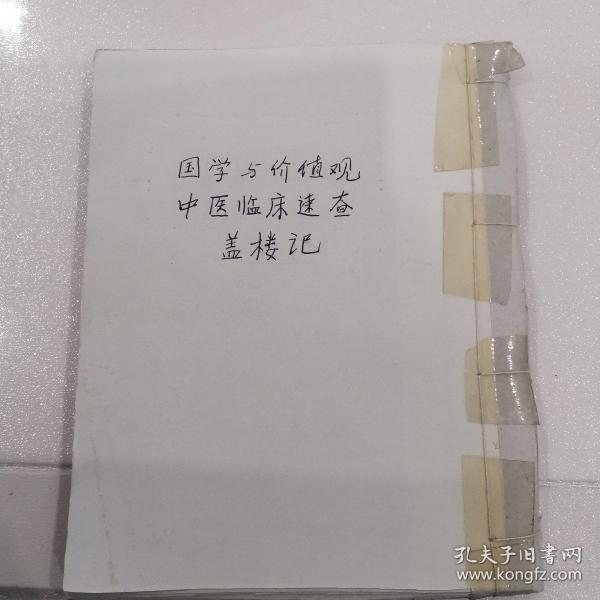 国学与价值观
中医临床速查
盖楼记
孔夫子旧书网
www.kongfz.com